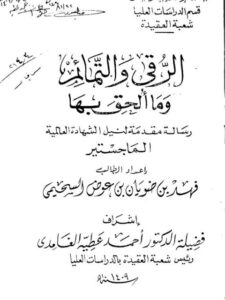 قسم الدراسات العليا
شعبة العقيدة
الرقى والتمائم
وما ألحق بها
رسالة مقدمة لنيل الشهادة العالمية
الماجستير
إعداد الطالب
فهد بن ضويان بن عوض السحيمي
بإشراف
فضيلة الدكتور أحمد عطية الغامدي
رئيس شعبة العقيدة بالدراسات العليا
سنة ١٤٠٩